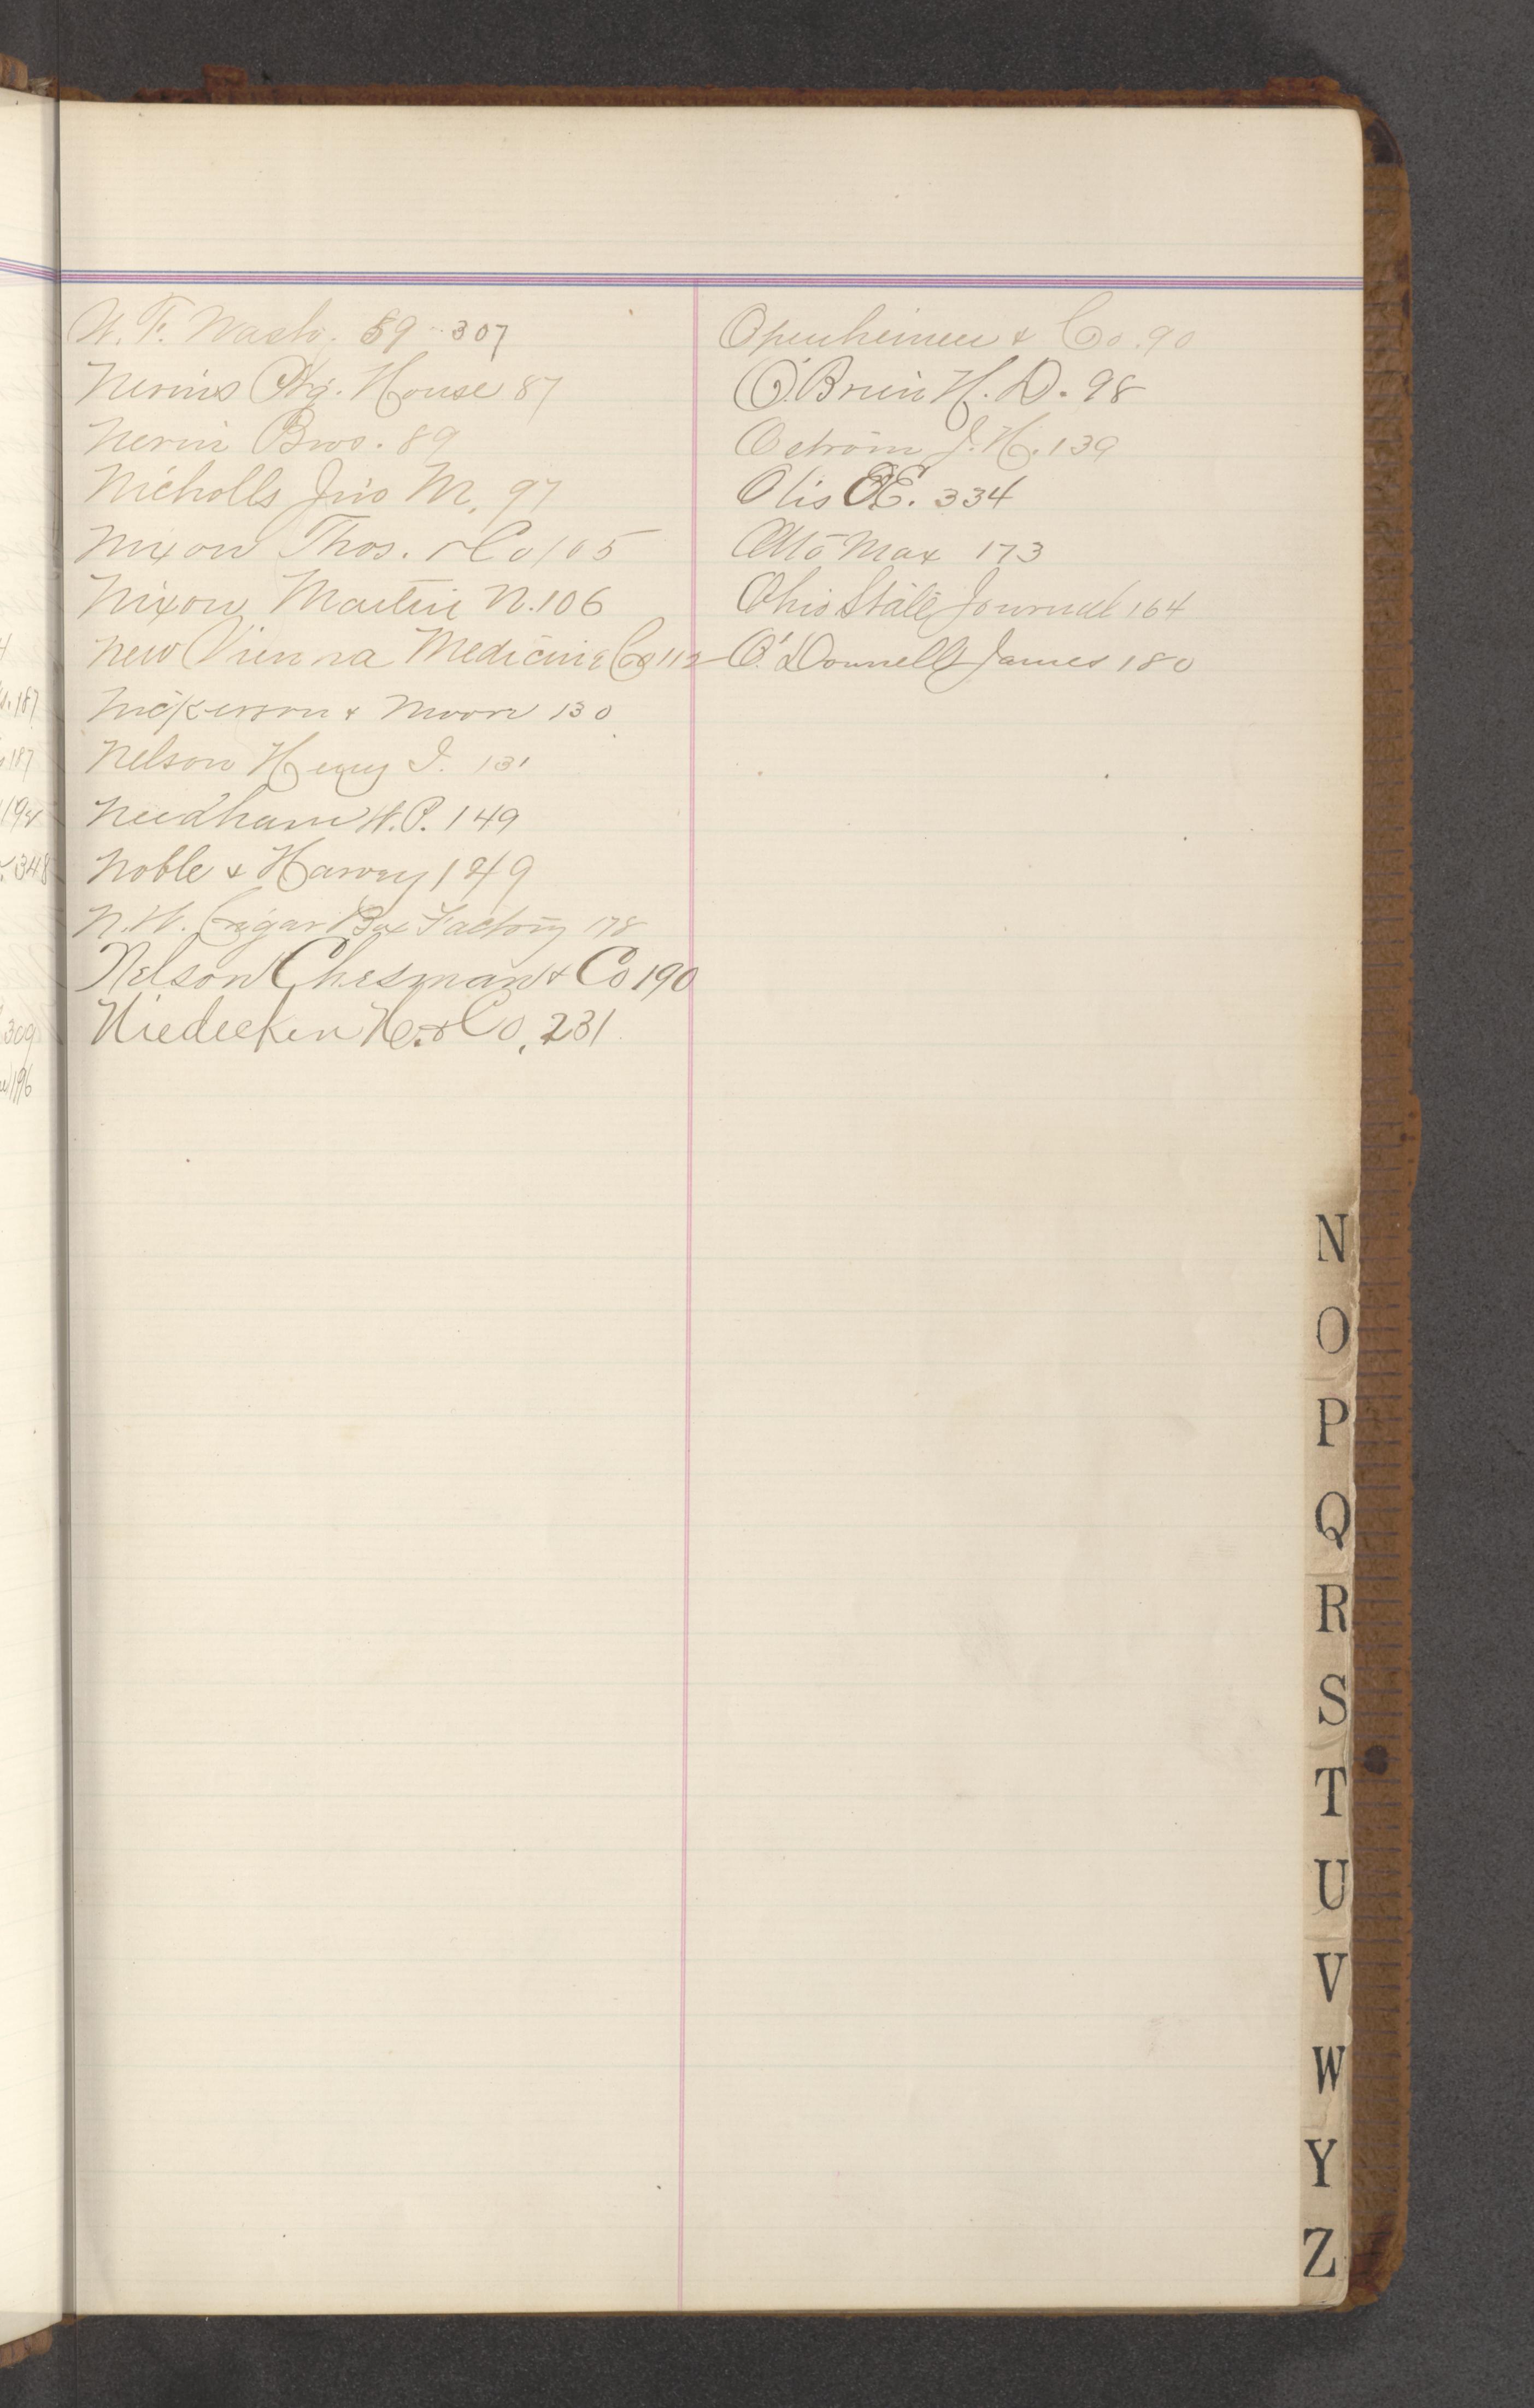 N. F. Nash. 59 307
Nevins Ptg. House 87
Nevin Bros. 89
Nicholls Jno M. 97
Nixon Thos. & Co 105
Nixon Martin N. 106
New Vienna Medicine Co 112
Nickerson & Moore 130
Nelson Henry I. 131
Needham W. P. 149
Noble & Harvey 149
N. W. Cigar Box Factory 178
Nelson Chesman & Co 190
Niedecken H. & Co. 231
Openheimer & Co. 90
O'Brien H. D. 98
Ostrom J. H. 139
Otis E. 334
Otto Max 173
Ohio State Journal 164
O'Donnell James 180
187
187
192
348
309
196
N
O
P
Q
R
S
T
U
V
W
Y
Z